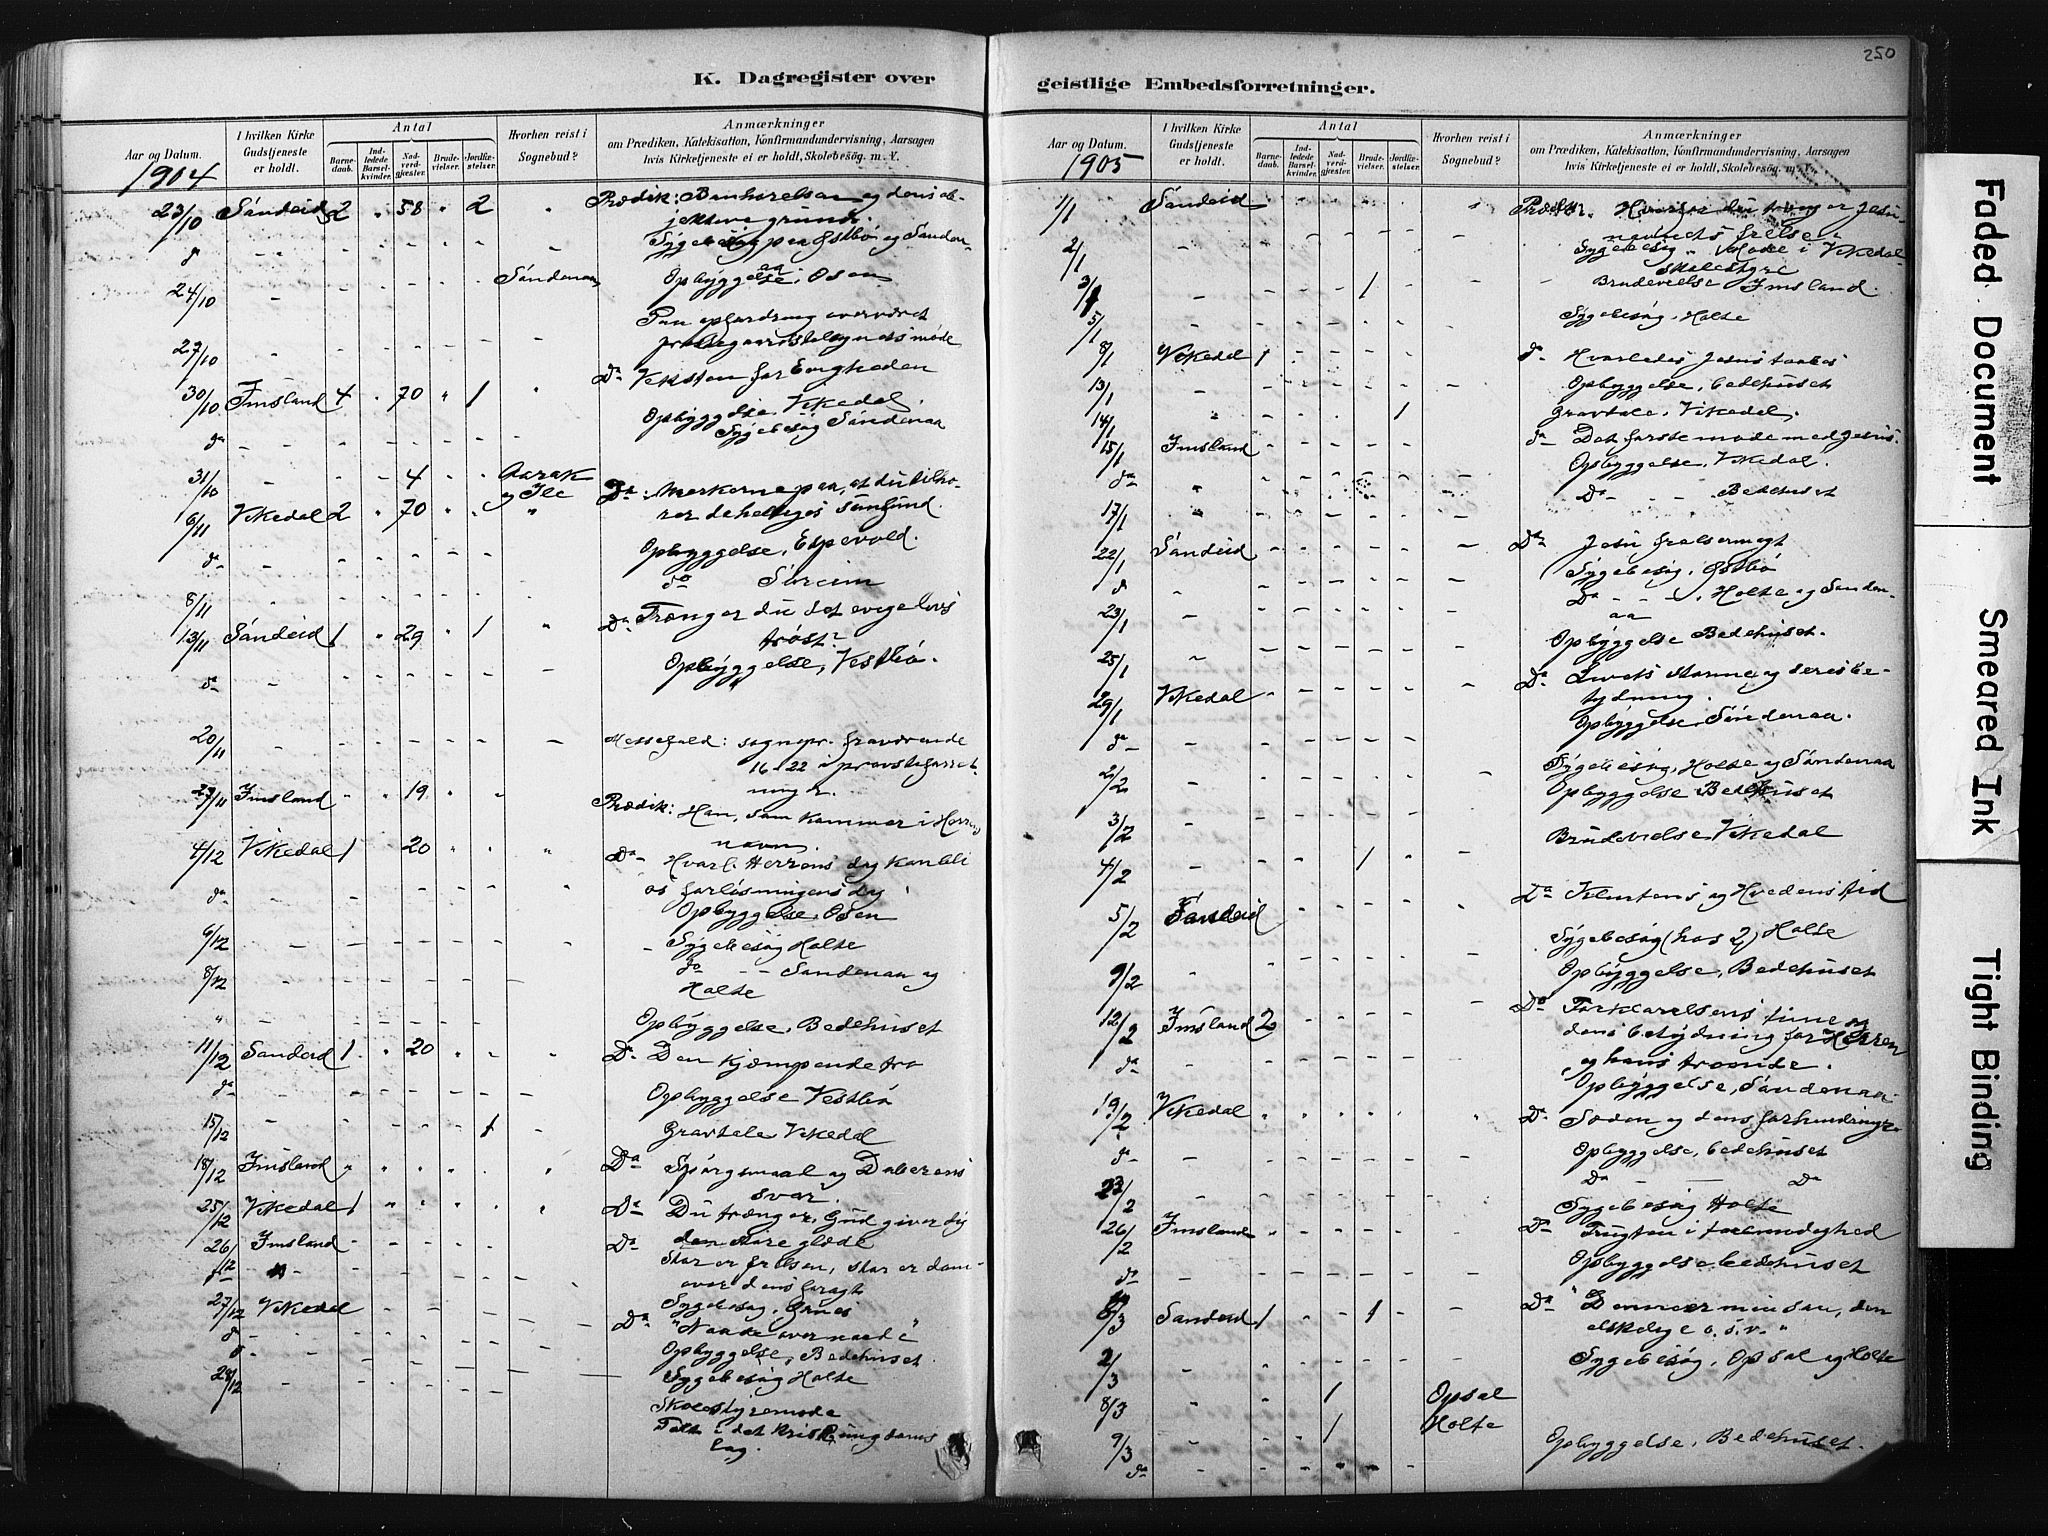 250
K. Dagregister over
geistlige Embedsforretninger.
Aar og Datum.
1904
I hvilken Kirke Gudstjeneste er holdt.
Antal
Barnedaab.
Indledede Barselkvinder.
Nadverdgjester.
Brudevielser.
Jordfæstelser.
Hvorhen reist i Sognebud?
Anmærkninger
om Prædiken, Katekisation, Konfirmandundervisning, Aarsagen
hvis Kirketjeneste ei er holdt, Skolebesøg. m. V.
23/10 Søndeid 2 " 58 " 2 " Prædik: og dens ob-
jektive grund.
Sygebesøg paa Østbø og Sønden-
aa
24/10 Søndenaa Opbyggelse, Osen
27/10 Paa opfordring overværet
møde
30/10 Imsland 4 " 70 " 1 " Da Veksten for Evigheden
da Opbyggelse, Vikedal
Sygebesøg Søndenaa
31/10 4 Aarak
og Ile
6/11 Vikedal 2 " 70 " " " Da: Merkerne paa, at du tilhø-
rer de helliges samfund.
da Opbyggelse, Espevold.
8/11 do Søreim
13/11 Søndeid 1 " 29 " 1 " Da Trænger du det evige livs
trøst?
da Opbyggelse, Vestbø.
20/11 Messefald: sognepr. fraværende
16-22 i provsteforret-
ninger.
27/11 Imsland " " 19 " " Prædik: Han, som kommer i Herrens
navn.
4/12 Vikedal 1 20 " " " Da Hvorl. Herrens dag kan bli
os forløsningens dag
da Opbyggelse, Osen
6/12 Sygebesøg Holte
8/12 do - - Søndenaa og
Holte
" Opbyggelse, Bedehuset
11/12 Søndeid 1 " 20 " " " Da Den kjæmpende tro
da Opbyggelse Vestbø
15/12 1 Gravtale Vikedal
18/12 Imsland " " " " " Da Spørgsmaal og Døberens
svar.
25/12 Vikedal 1 " " " " " Da Du trænger, Gud giver dig
den store glæde
26/12 Imsland Da Stor er frelsen, stor er dom-
over dens foragt
da Sygebesøg,
27/12 Vikedal Da "Naade over naade"
da Opbyggelse, Bedehuset.
Sygebesøg Holte
28/12 Skolestyremøde
Tale i det
Lag.
Aar og Datum.
1905
I hvilken Kirke Gudstjeneste er holdt.
Antal
Barnedaab.
Indledede Barselkvinder.
Nadverdgjester.
Brudevielser.
Jordfæstelser.
Hvorhen reist i Sognebud?
Anmærkninger
om Prædiken, Katekisation, Konfirmandundervisning, Aarsagen
hvis Kirketjeneste ei er holdt, Skolebesøg. m. V.
1/1 Søndeid Prædik. er Jesu-
navnets frelse
2/1 Sygebesøg. Møde i Vikedal
skolestyre
3/1 1 Brudevielse Imsland.
5/1 Sygebesøg, Holte
8/1 Vikedal 1 da Hvorledes Jesus
13/1 Opbyggelse, bedehuset
14/1 1 Gravtale, Vikedal.
15/1 Imsland da Det første møde med Jesus.
da Opbyggelse, Vikedal.
17/1 Da - - - Bedehuset
22/1 Søndeid Da Jesu frelsermagt
da Sygebesøg, Østbø
23/1 Da - - -, Holte og Sønden-
aa
25/1 Opbyggelse Bedehuset.
29/1 Vikedal Da Livets storme og deres be-
tydning.
da Opbyggelse, Søndenaa.
2/2 Sygebesøg, Holte og Søndenaa
3/2 Opbyggelse Bedehuset
4/2 1 Brudevielse, Vikedal
5/2 Søndeid Da Klintens og Hvedens tid
Sygebesøg (hos 2) Holte
9/2 Opbyggelse, Bedehuset
12/2 Imsland 2 Da Forklarelsens time og
dens betydning for Herren
og hans troende.
da Opbyggelse, Søndenaa.
19/2 Vikedal Da Sæden og dens forhindringer
da Opbyggelse, bedehuset
23/2 Da - - Da
Sygebesøg Holte
26/2 Imsland Da Frugten i taalmodighed
da Opbyggelse bedehuset
/3 Søndeid 1 1 Da "Denne er min søn, den
elskelige o. s. v."
2/3 Sygebesøg, Opsal og Holte
8/3 1 Opsal
9/3 1 Holte
da Opbyggelse, Bedehuset.
Faded Document
Smeared Ink
Tight Binding